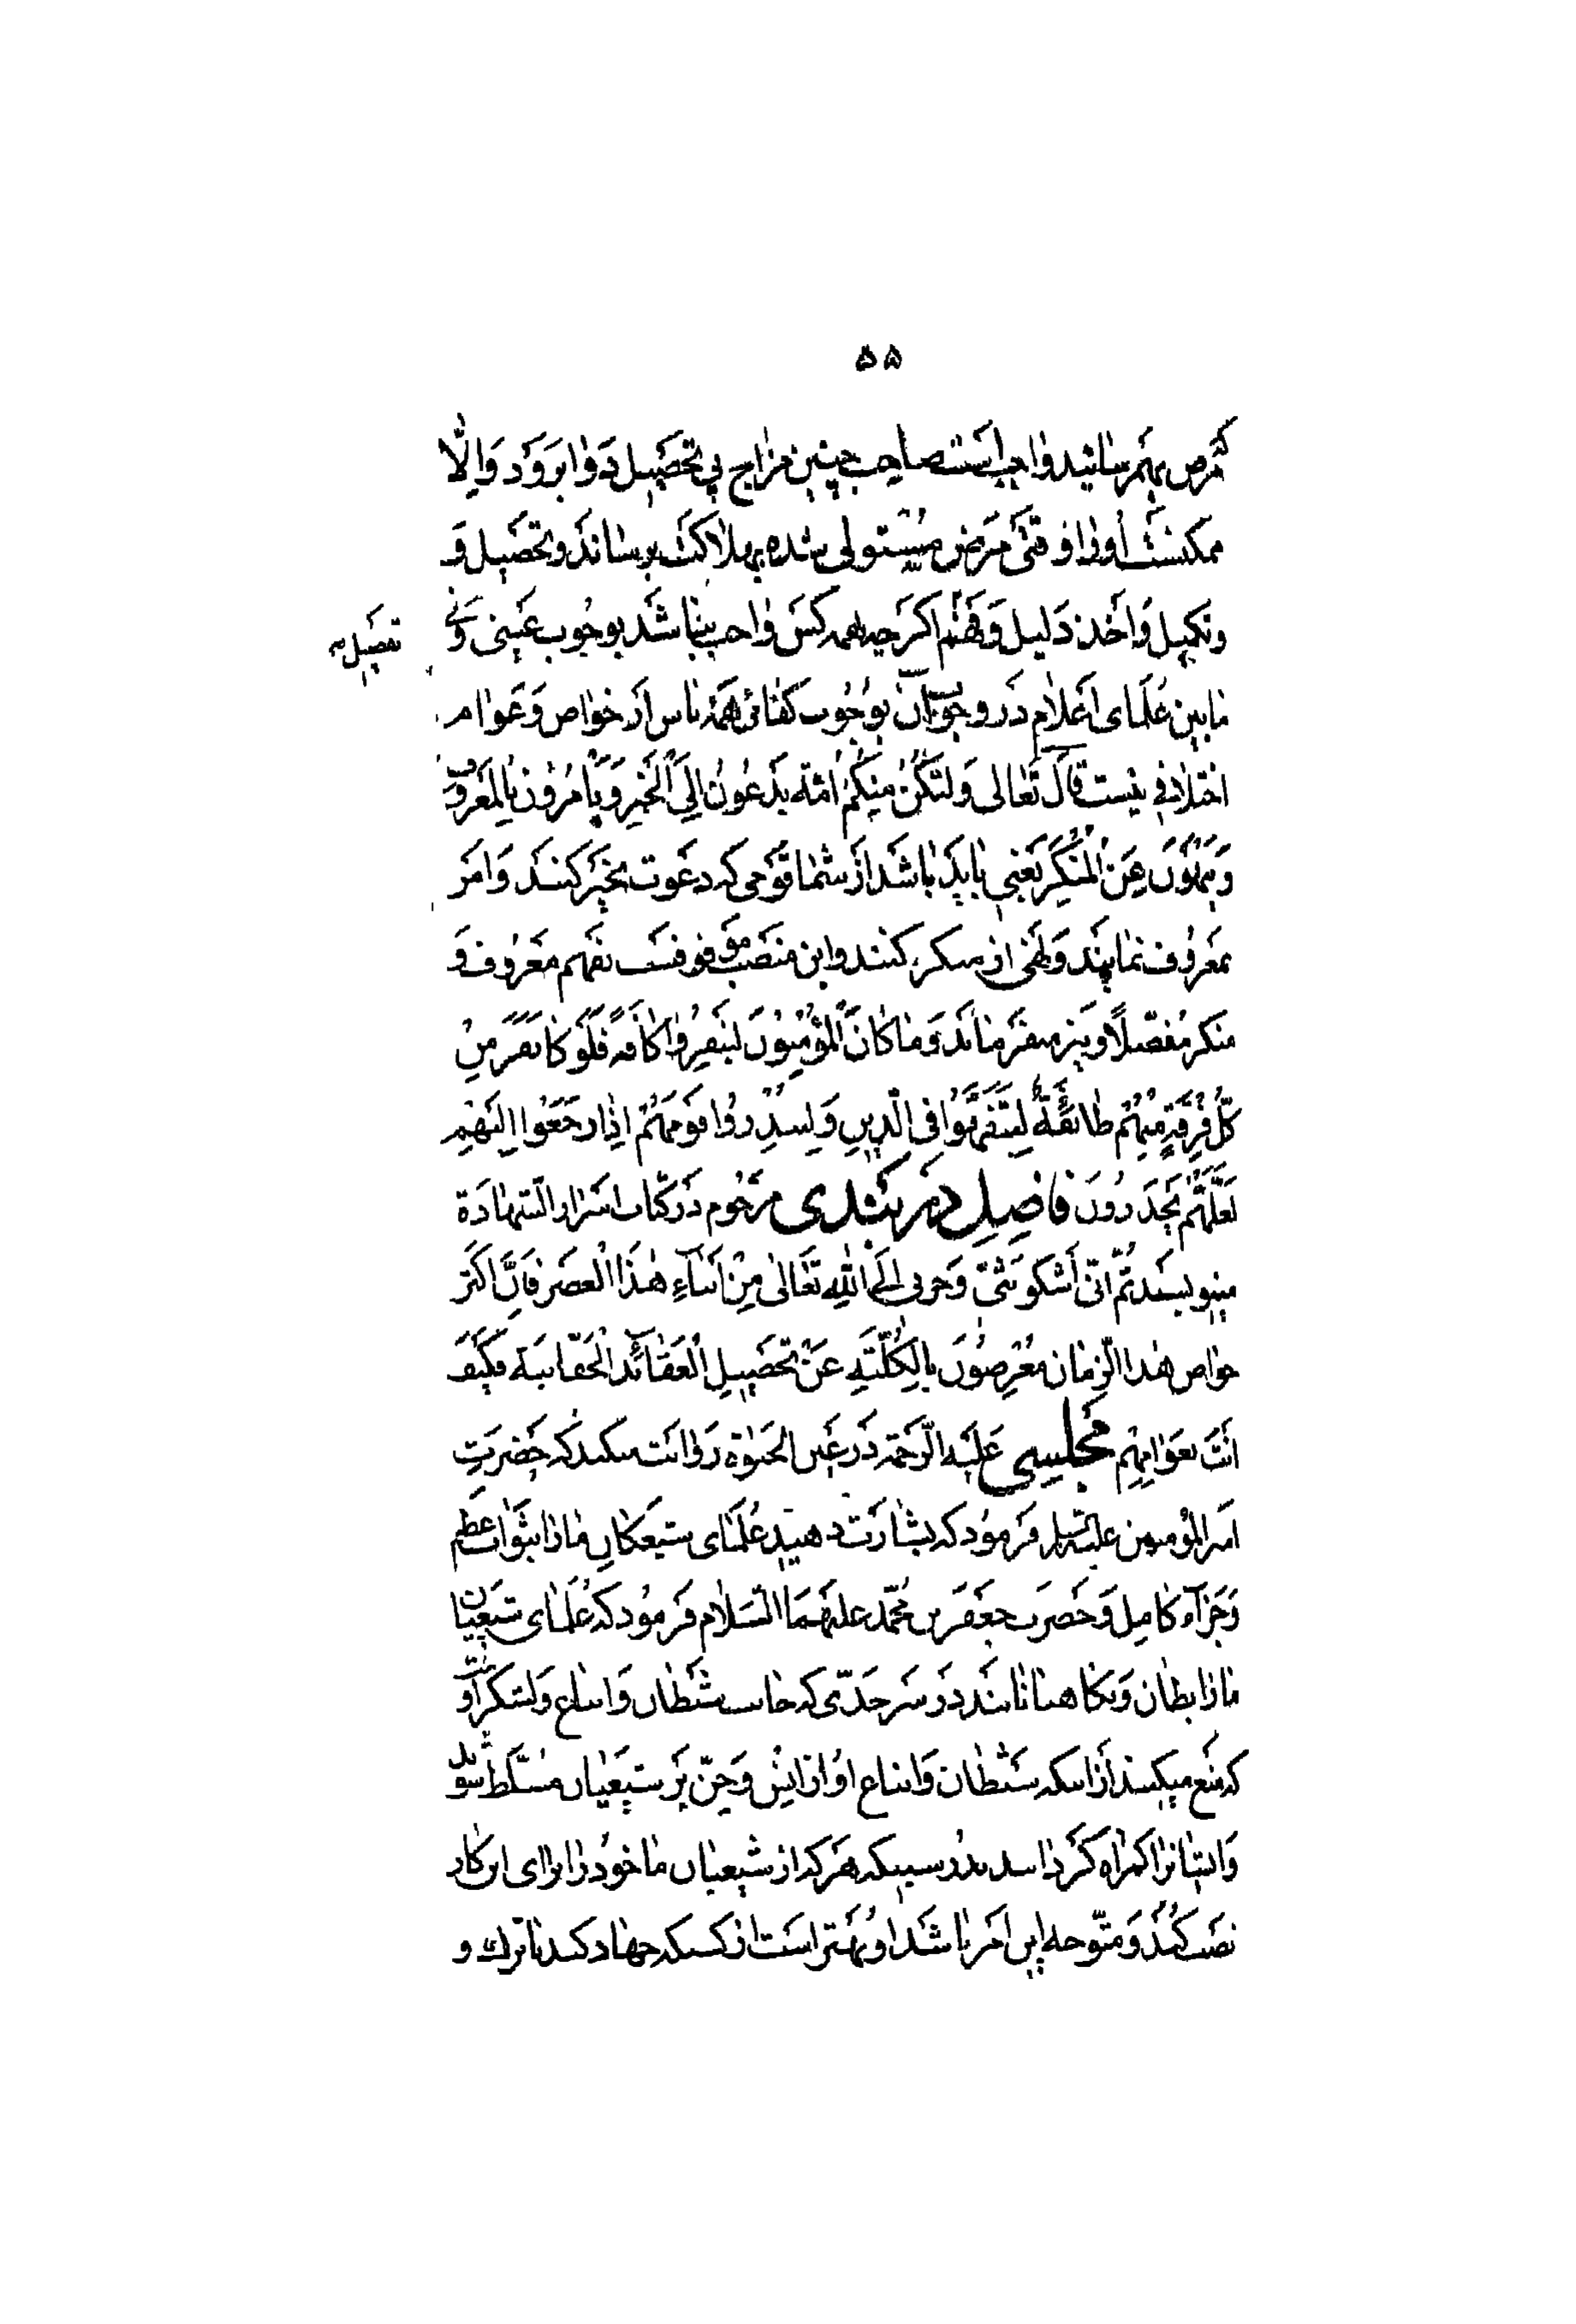 ۵۵
مرض بهم رسانید واجب است صاحب چنین مزاج پی تحصیل دوا برود و الّا
ممکنست او را وقتی مرض مستولی شده بهلاکت برساند و تحصیل و
تکمیل و اخذ دلیل و فهم اگرچه همه کس واجب نباشد بوجوب عینی و فی
تفصیل
مابین علمای اعلام در وجوب آن بوجوب کفائی همه ناس از خواص و عوام
اختلافی نیست قال تعالی وَلتَکُنْ مِنکُمْ اُمّة یَدْعُونَ اِلَی الْخَیرِ وَیَأمُرُونَ بِالمَعْرُوفِ
وَیَنهَوْنَ عَنِ الْمُنکَرِ یعنی باید باشد از شما قومی که دعوت بخیر کنند و امر
بمعروف نمایند و نهی از منکر کنند و این منصب موقوفست بفهم معروف و
منکر مفصّلاً و نیز میفرماید وَمَا کَانَ الْمُؤْمِنُونَ لِیَنفِرُوا کَافّةً فَلَوْلَا نَفَرَ مِنْ
کُلِّ فِرْقَةٍ مِنْهُمْ طَائِفَةٌ لِیَتَفَقَّهُوا فِی الدِّینِ وَلِیُنْذِرُوا قَوْمَهُمْ اِذَا رَجَعُوا اِلَیْهِمْ
لَعَلَّهُمْ یَحْذَرُونَ فاضل دربندی مرحوم در کتاب اسرار الشهادة
مینویسد ثُمّ اِنّی اَشْکُو بَثّی وَحُزنی اِلَی اللهِ تَعَالی مِنْ اَبْنَاءِ هٰذَا الْعَصْرِ فَاِنَّ اَکثَرَ
خواص هذا الزمان مُعْرِضُونَ بِالْکُلّیّةِ عَنْ تَحْصِیلِ الْعَقَائِدِ الْحَقّانیة فکیف
اَنْتَ بعَوَامِهِم مجلسی علیه الرحمة در عین الحیوة روایت میکند که حضرت
امیرالمؤمنین علیه السلام فرمود که بشارت دهید علمای شیعیان ما را بثواب عظیم
و جزاء کامل و حضرت جعفر بن محمّد علیهما السلام فرمود که علمای شیعیان
ما رابطان و نگاهبانانند در سرحدّی که جانب شیطان و اتباع و لشکر اوست
که منع میکنند از اینکه شیطان و اتباع او از انس و جنّ بر شیعیان مسلّط شوند
و ایشانرا گمراه گردانند بدرستیکه هرکه از شیعیان ما خود را برای این کار
نصب کند و متوجه این امر باشد او بهتر است از کسیکه جهاد کند با ترک و